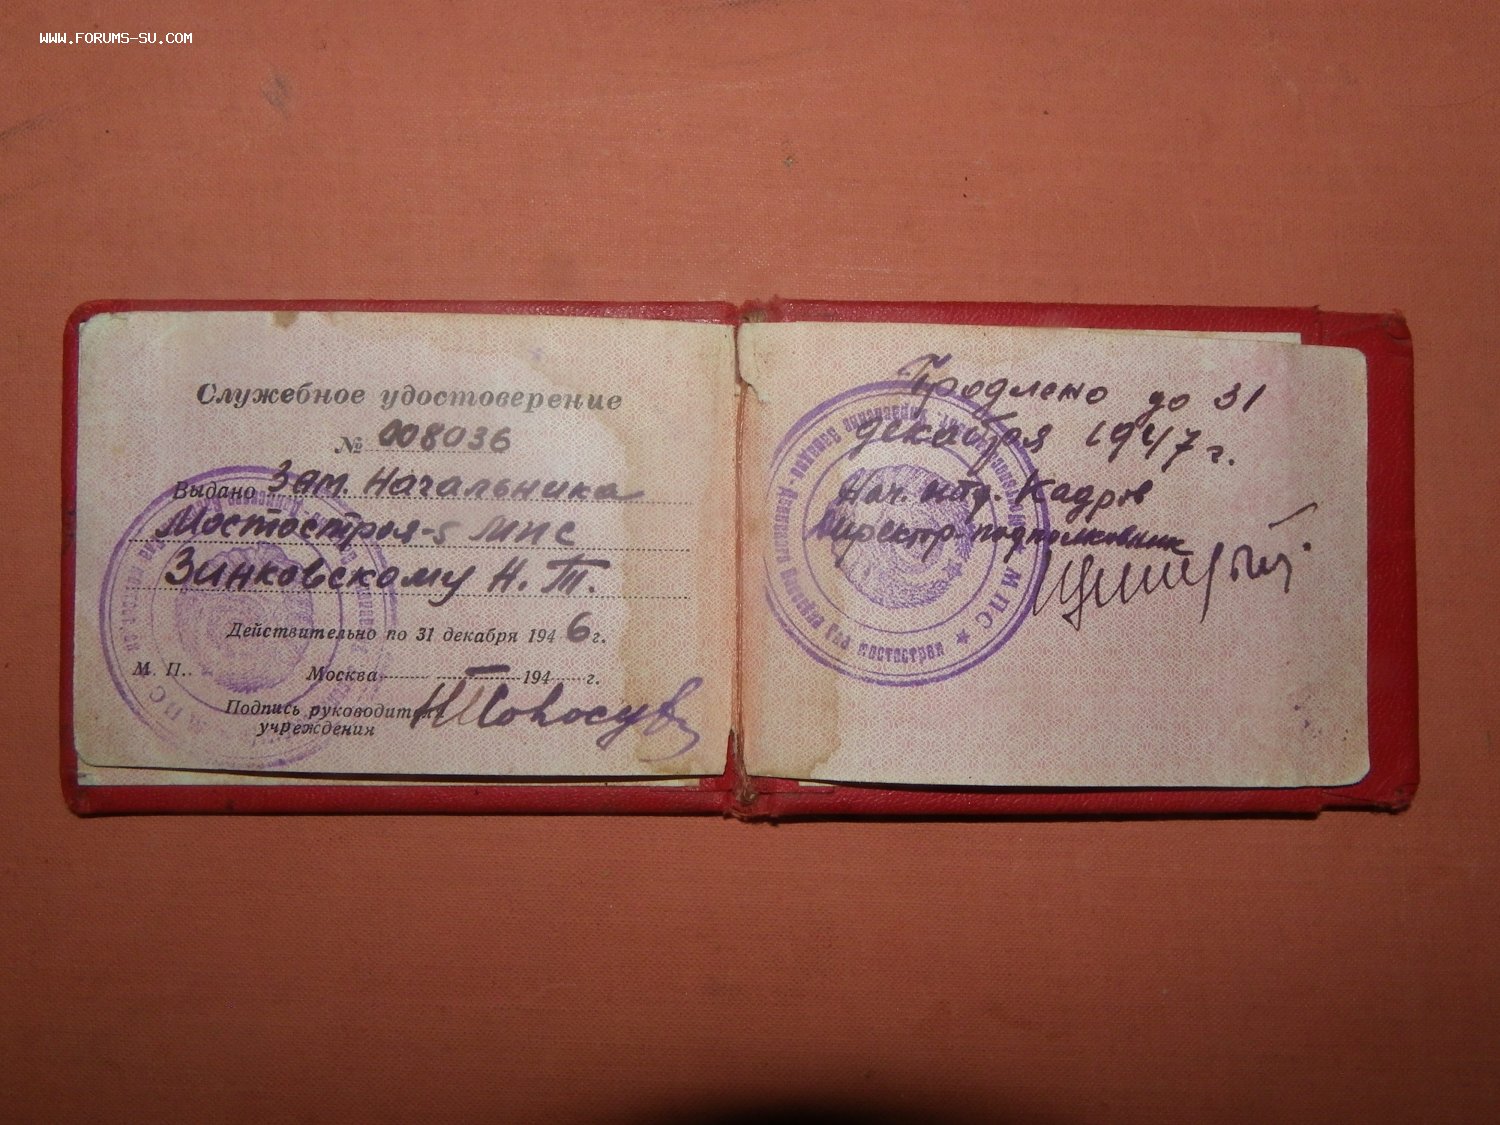 WWW.FORUMS-SU.COM
Служебное удостоверение
№ 008036
Выдано Зам. Начальника
Мостостроя-5 МПС
Зинковскому Н. Т.
Действительно по 31 декабря 1946 г.
М. П. Москва 194 г.
Подпись руководителя
учреждения
Продлено до 31
декабря 1947 г.
Нач. отд. Кадров
Директор-подполковник
МПС
мостострой